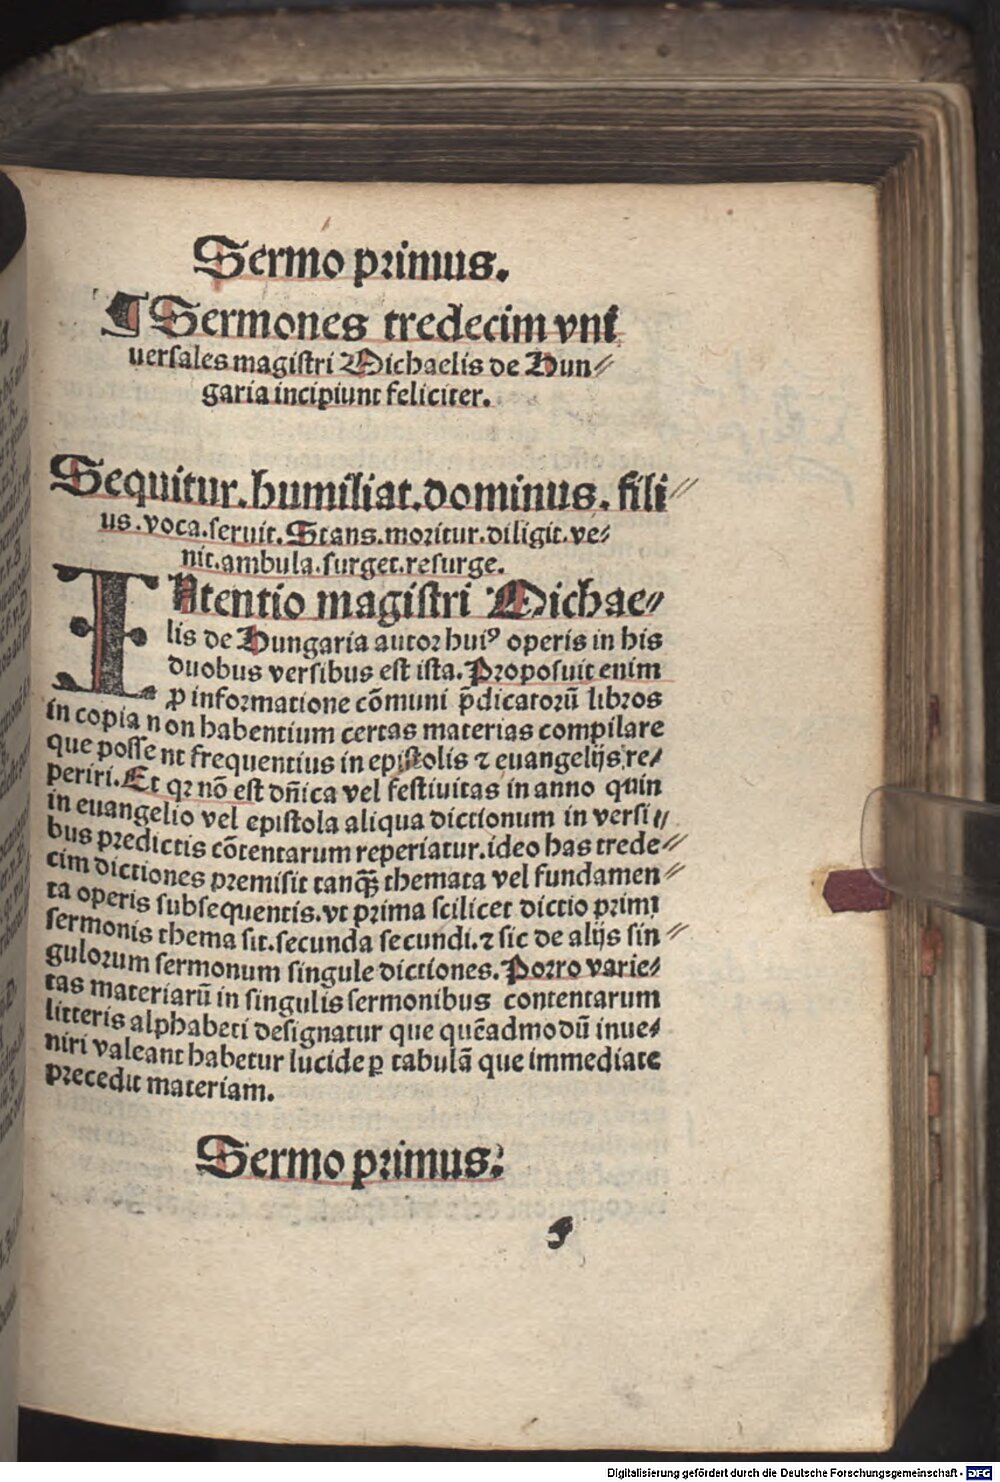 Sermo primus.
¶ Sermones tredecim vni
uersales magistri Michaelis de Hun⸗
garia incipiunt feliciter.
Sequitur. humiliat. dominus. fili⸗
us. voca. seruit. Stans. moritur. diligit. ve⸗
nit. ambula. surget. resurge.
INtentio magistri Michae⸗
lis de Hungaria autor huiꝰ operis in his
duobus versibus est ista. Proposuit enim
ꝓ informatione cōmuni p̄dicatorū libros
in copia non habentium certas materias compilare
que possent frequentius in epistolis ⁊ euangelijs re⸗
periri. Et qꝛ nō est dn̄ica vel festiuitas in anno quin
in euangelio vel epistola aliqua dictionum in versi⸗
bus predictis cōtentarum reperiatur. ideo has trede⸗
cim dictiones premisit tanqꝫ̄ themata vel fundamen⸗
ta operis subsequentis. vt prima scilicet dictio primi
sermonis thema sit. secunda secundi. ⁊ sic de alijs sin⸗
gulorum sermonum singule dictiones. Porro varie⸗
tas materiarū in singulis sermonibus contentarum
litteris alphabeti designatur que quēadmodū inue⸗
niri valeant habetur lucide ꝑ tabulā que immediate
precedit materiam.
Sermo primus.
Digitalisierung gefördert durch die Deutsche Forschungsgemeinschaft - DFG